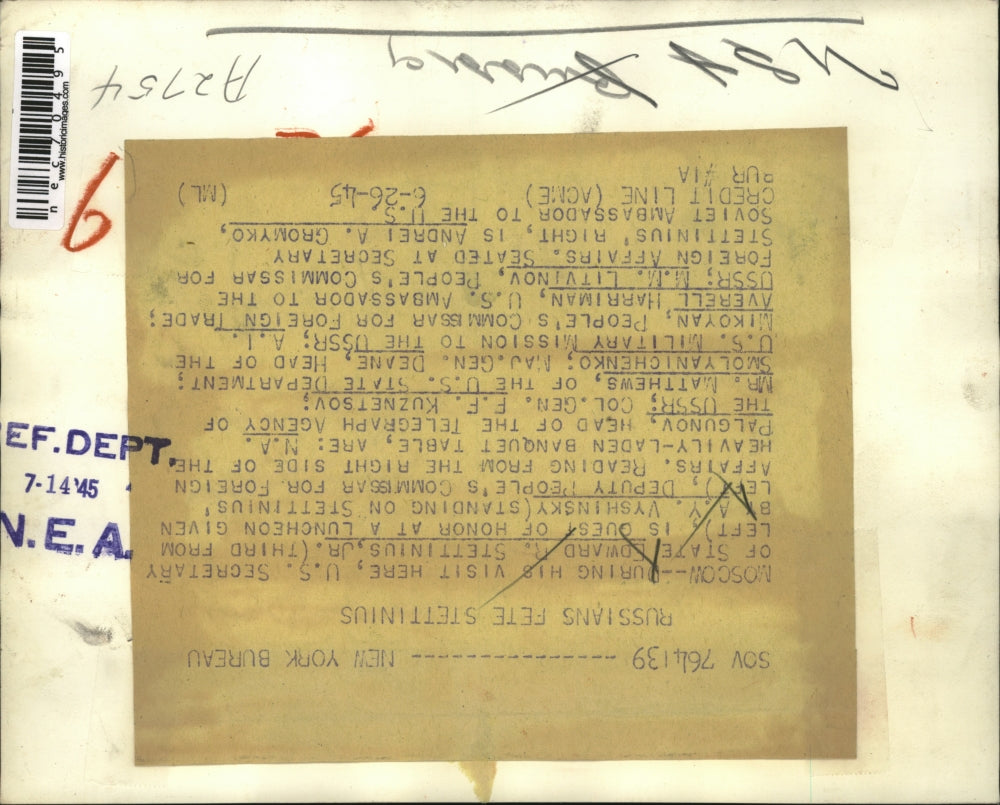 SOV 764139 ----------------- NEW YORK BUREAU
RUSSIANS FETE STETTINIUS
MOSCOW--DURING HIS VISIT HERE, U.S. SECRETARY
OF STATE EDWARD R. STETTINIUS,JR.(THIRD FROM
LEFT), IS GUEST OF HONOR AT A LUNCHEON GIVEN
BY A.Y. VYSHINSKY(STANDING ON STETTINIUS'
LEFT), DEPUTY PEOPLE'S COMMISSAR FOR FOREIGN
AFFAIRS. READING FROM THE RIGHT SIDE OF THE
HEAVILY-LADEN BANQUET TABLE, ARE: N.A.
PALGUNOV, HEAD OF THE TELEGRAPH AGENCY OF
THE USSR; COL.GEN. F.F. KUZNETSOV;
MR. MATTHEWS, OF THE U.S. STATE DEPARTMENT;
SMOLYANICHENKO; MAJ.GEN. DEANE, HEAD OF THE
U.S. MILITARY MISSION TO THE USSR; A.I.
MIKOYAN, PEOPLE'S COMMISSAR FOR FOREIGN TRADE;
AVERELL HARRIMAN, U.S. AMBASSADOR TO THE
USSR; M.M. LITVINOV, PEOPLE'S COMMISSAR FOR
FOREIGN AFFAIRS. SEATED AT SECRETARY
STETTINIUS' RIGHT, IS ANDREI A. GROMYKO,
SOVIET AMBASSADOR TO THE U.S.
CREDIT LINE (ACME) 6-26-45 (ML)
BUR #1A
A2754
nec70495
www.historicimages.com
EF.DEPT.
7-14'45
N.E.A.